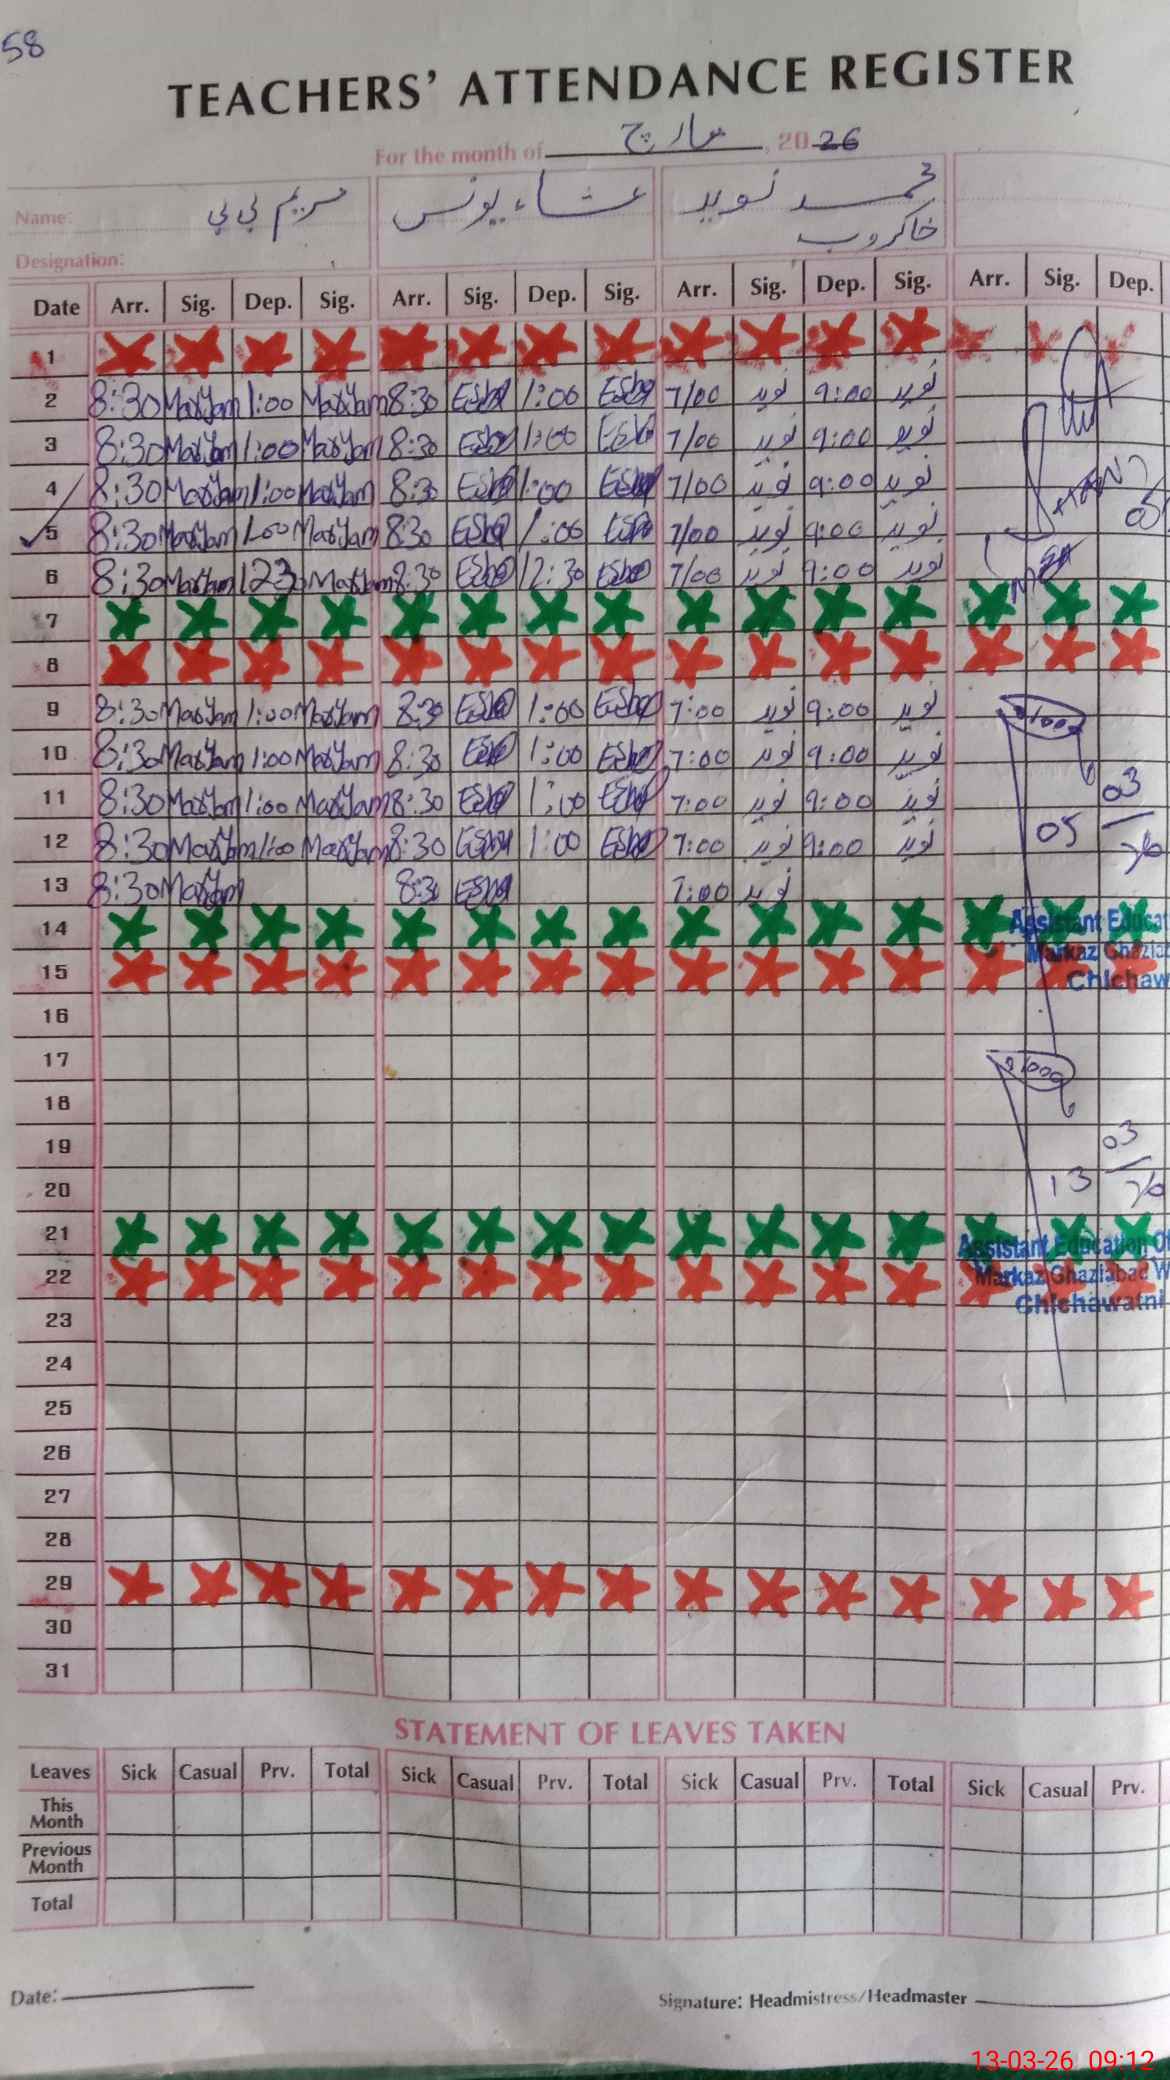 58
TEACHERS' ATTENDANCE REGISTER
For the month of مارچ, 2026
Name: مریم بی بی عشاء یونس محمد نوید
Designation: خاکروب
Date Arr. Sig. Dep. Sig. Arr. Sig. Dep. Sig. Arr. Sig. Dep. Sig. Arr. Sig. Dep.
1
2 8:30 Maryam 1:00 Maryam 8:30 Esha 1:00 Esha 7/00 نوید 9:00 نوید
3 8:30 Maryam 1:00 Maryam 8:30 Esha 1:00 Esha 7/00 نوید 9:00 نوید
4 8:30 Maryam 1:00 Maryam 8:30 Esha 1:00 Esha 7/00 نوید 9:00 نوید
5 8:30 Maryam 1:00 Maryam 8:30 Esha 1:00 Esha 7/00 نوید 9:00 نوید
6 8:30 Maryam 1230 Maryam 8:30 Esha 12:30 Esha 7/00 نوید 9:00 نوید
7
8
9 8:30 Maryam 1:00 Maryam 8:30 Esha 1:00 Esha 7:00 نوید 9:00 نوید
10 8:30 Maryam 1:00 Maryam 8:30 Esha 1:00 Esha 7:00 نوید 9:00 نوید
11 8:30 Maryam 1:00 Maryam 8:30 Esha 1:00 Esha 7:00 نوید 9:00 نوید
12 8:30 Maryam 1:00 Maryam 8:30 Esha 1:00 Esha 7:00 نوید 9:00 نوید
13 8:30 Maryam 8:30 Esha 7:00 نوید
05 03/26
14 Assistant Educat
15 Markaz Ghaziab
Chichaw
16
17
18
19
20
13 03/26
21 Assistant Education Of
22 Markaz Ghaziabad W
Chichawatni
23
24
25
26
27
28
29
30
31
STATEMENT OF LEAVES TAKEN
Leaves Sick Casual Prv. Total Sick Casual Prv. Total Sick Casual Prv. Total Sick Casual Prv.
This Month
Previous Month
Total
Date:
Signature: Headmistress/Headmaster
13-03-26 09:12